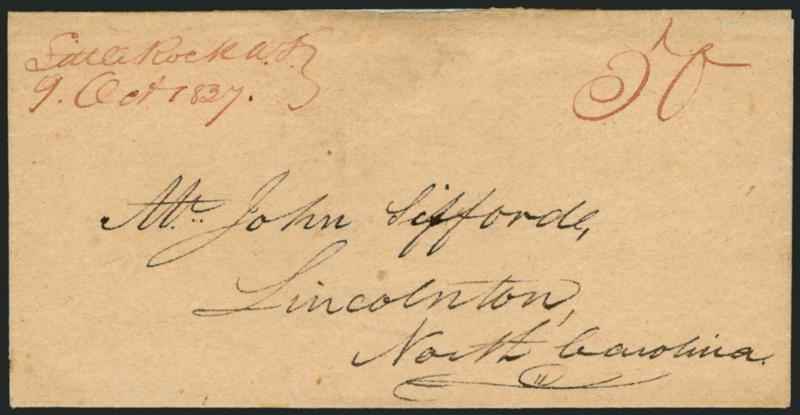 Little Rock A.T.
9. Oct 1827.
50
Mr. John Sifforde,
Lincolnton,
North Carolina.